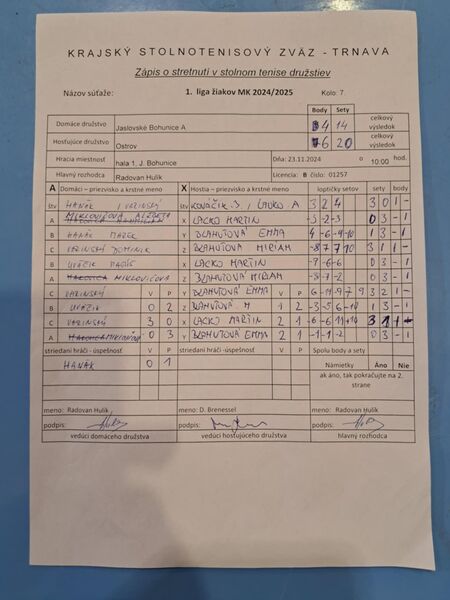 KRAJSKÝ STOLNOTENISOVÝ ZVÄZ - TRNAVA
Zápis o stretnutí v stolnom tenise družstiev
Názov súťaže: 1. liga žiakov MK 2024/2025 Kolo: 7.
Body Sety
Domáce družstvo Jaslovské Bohunice A 4 14 celkový výsledok
Hosťujúce družstvo Ostrov 6 20 celkový výsledok
Hracia miestnosť hala 1, J. Bohunice Dňa: 23.11.2024 o 10:00 hod.
Hlavný rozhodca Radovan Hulík Licencia: B číslo: 01257
A Domáci - priezvisko a krstné meno X Hostia - priezvisko a krstné meno loptičky setov sety body
štv HANÁK / VAZINSKÝ štv KOVÁČIK S. / LACKO A 3 2 4 3 0 1 -
A MIKLOVIČOVÁ ALŽBETA X LACKO MARTIN 0 3 - 1
B HANÁK MAREK Y BLAHUTOVÁ EMMA 4 -6 -9 -10 1 3 - 1
C VAZINSKÝ DOMINIK Z BLAHUTOVÁ MIRIAM -8 7 7 10 3 1 1 -
B X LACKO MARTIN -9 -6 -6 0 3 - 1
A MIKLOVIČOVÁ Z BLAHUTOVÁ MIRIAM -8 -7 -2 0 3 - 1
C VAZINSKÝ V P Y BLAHUTOVÁ EMMA V P 6 -11 -9 7 9 3 2 1 -
B 0 2 Z BLAHUTOVÁ M 1 2 -3 -5 6 -10 1 3 - 1
C VAZINSKÝ 3 0 X LACKO MARTIN 2 1 -6 6 11 10 3 1 1 -
A MIKLOVIČOVÁ 0 3 Y BLAHUTOVÁ EMMA 2 1 -1 -1 -2 0 3 - 1
striedaní hráči - úspešnosť V P striedaní hráči - úspešnosť V P Spolu body a sety
HANÁK 0 1 Námietky Áno Nie
ak áno, tak pokračujte na 2. strane
meno: Radovan Hulík meno: D. Brenessel meno: Radovan Hulík
podpis: podpis: podpis:
vedúci domáceho družstva vedúci hosťujúceho družstva hlavný rozhodca